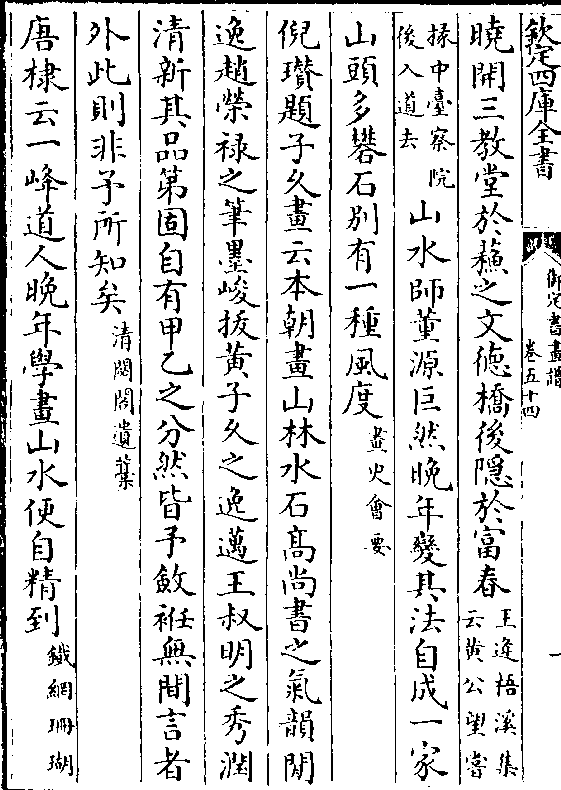 欽定四庫全書
御定書畫譜
卷五十四
一
曉開三教堂於蘓之文徳橋後隱於富春王逢梧溪集
云黄公望嘗
掾中臺察院
後入道去山水師董源巨然晩年變其法自成一家
山頭多礬石别有一種風度畫史會要
倪瓚題子久畫云本朝畫山林水石髙尚書之氣韻閒
逸趙榮禄之筆墨峻拔黄子久之逸邁王叔明之秀潤
清新其品第固自有甲乙之分然皆予斂袵無間言者
外此則非予所知矣清閟閣遺藁
唐棣云一峰道人晩年學畫山水便自精到鐵網珊瑚